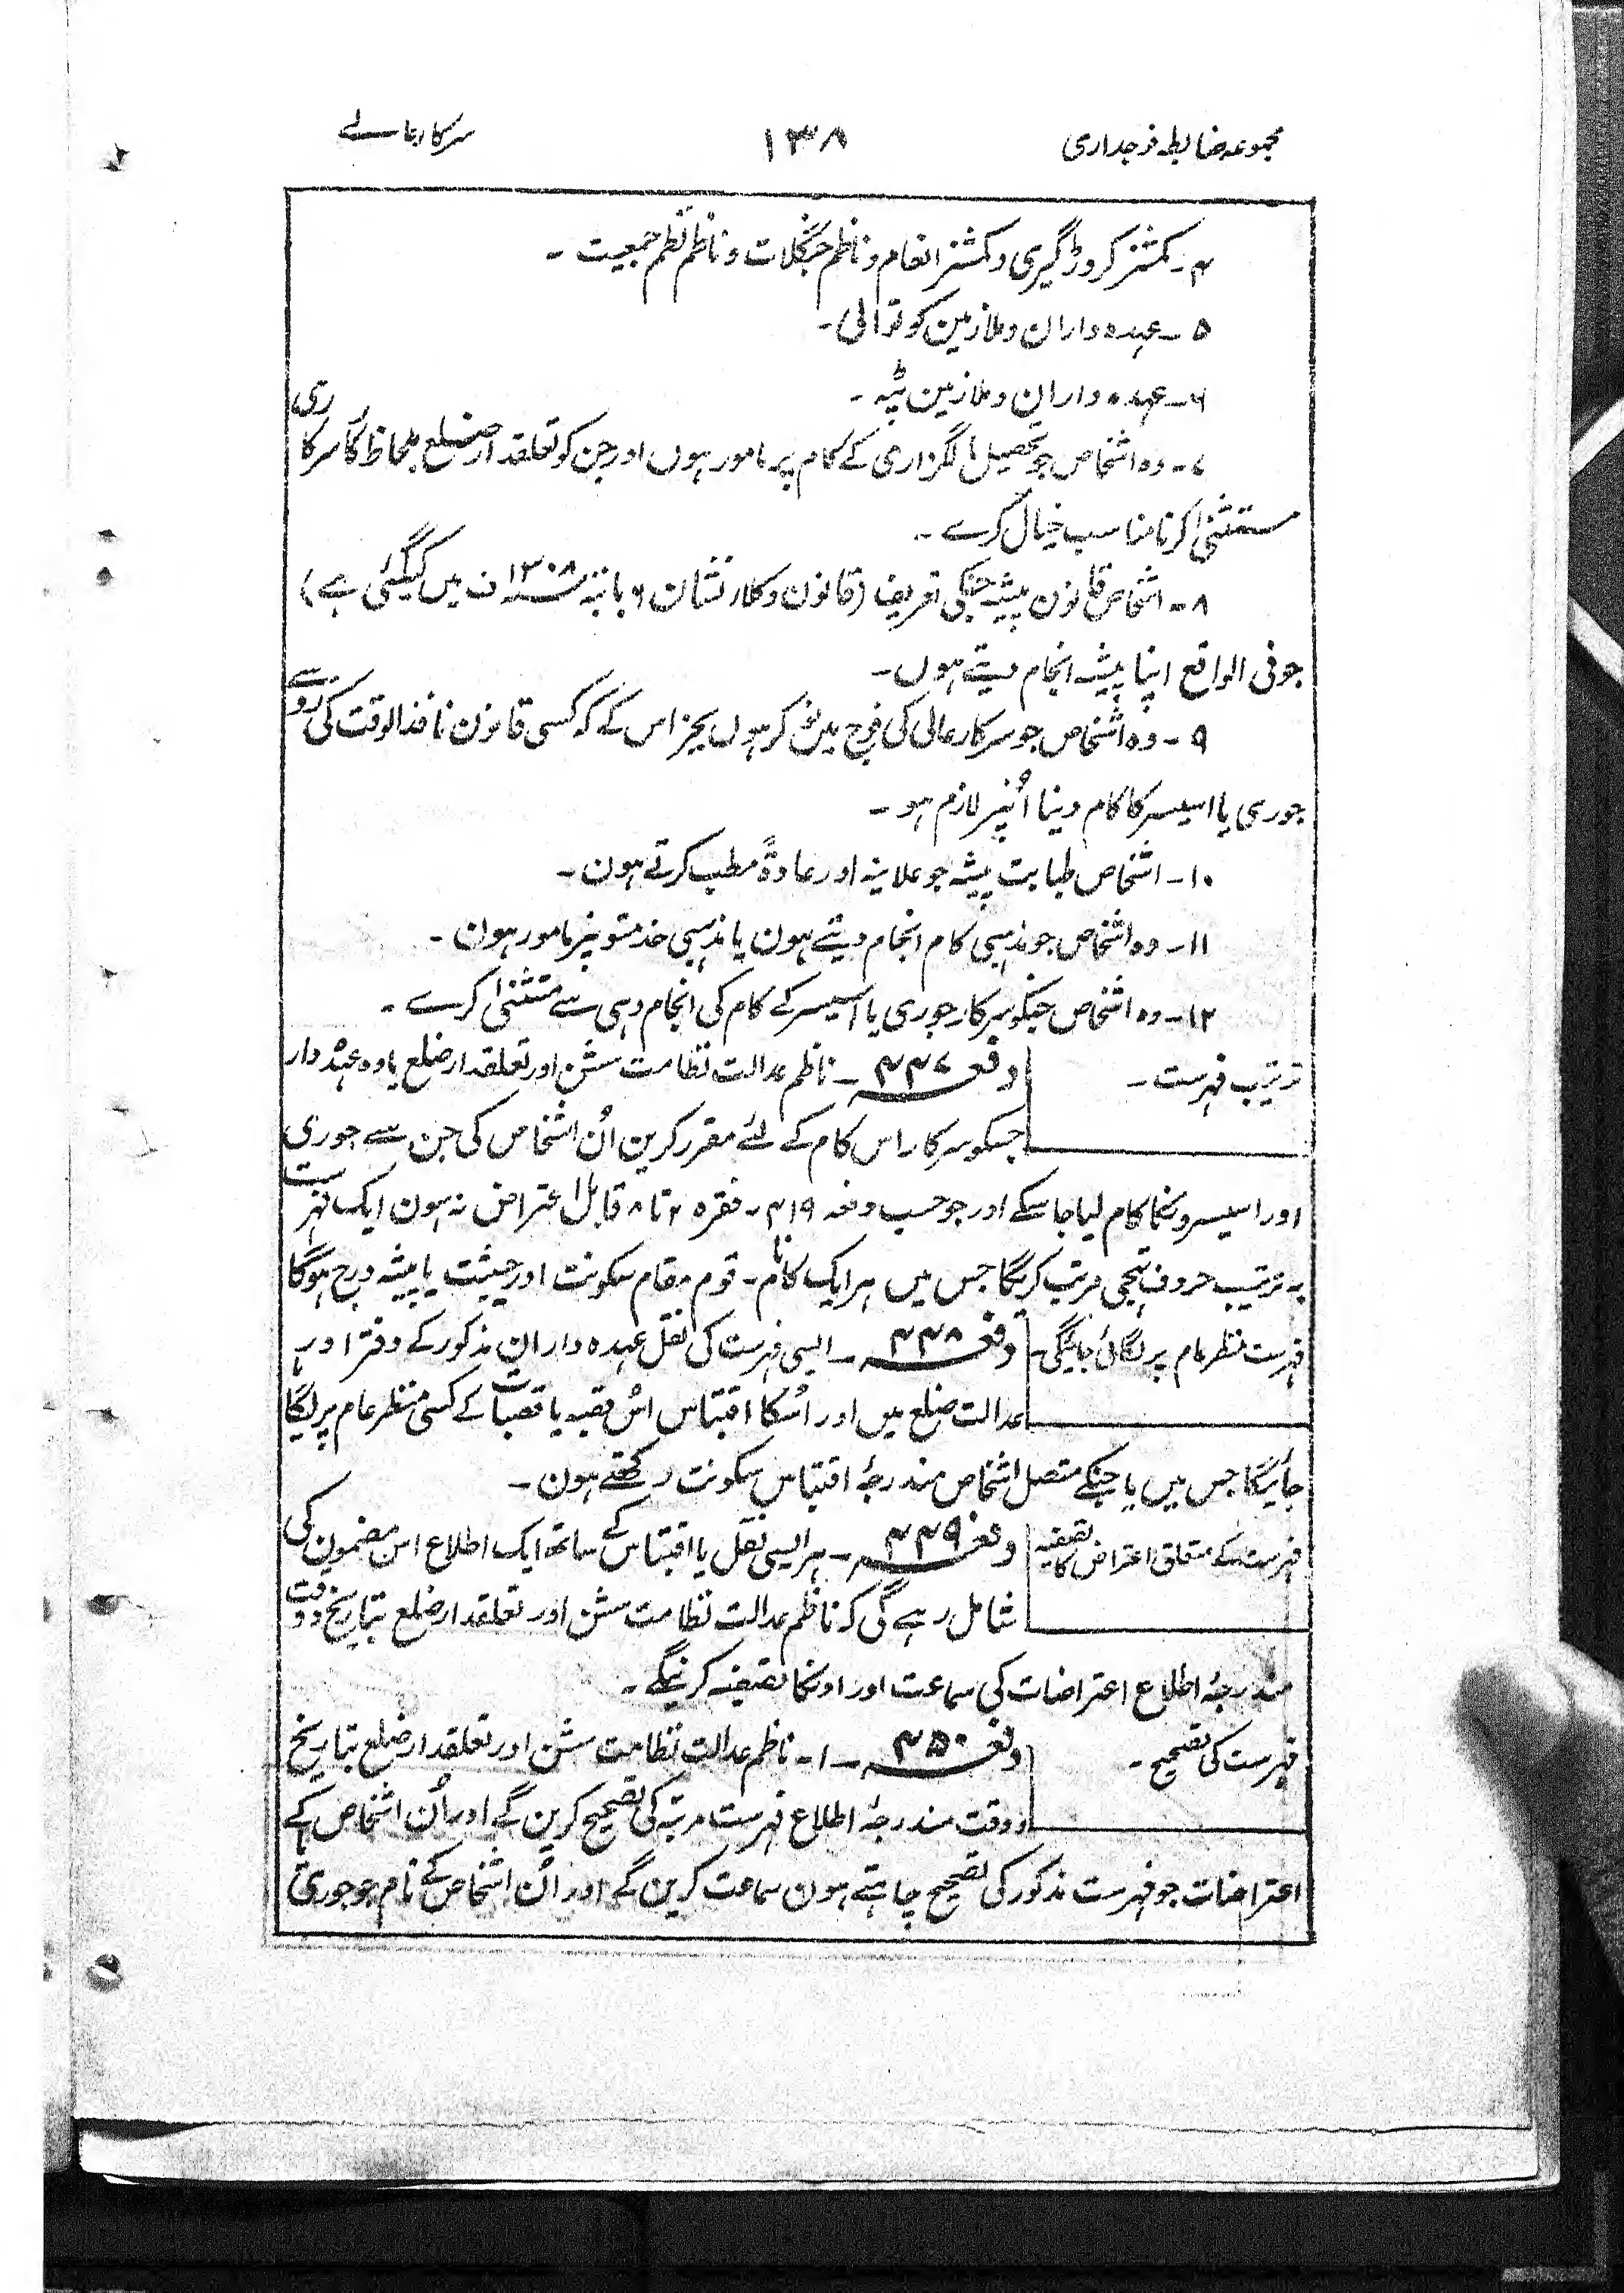 مجموعہ ضابطہ فوجداری ۱۳۸ سرکار عالے
۴۔ کمشنر کروڑگیری و کمشنر انعام و ناظم جنگلات و ناظم نظم جمعیت ۔
۵ ۔ عہدہ داران و ملازمین کوتوالی ۔
۶ ۔ عہدہ داران و ملازمین ٹپہ ۔
۷ ۔ وہ اشخاص جو تحصیل مالگزاری کے کام پر مامور ہوں اور جن کو تعلقدار ضلع بلحاظ کار سرکاری
مستثنیٰ کرنا مناسب خیال کرے ۔
۸ ۔ اشخاص قانون پیشہ جنکی تعریف (قانون وکلار نشان ۶ بابتہ سنہ ۱۳۰۸ ف میں کیگئی ہے)
جو فی الواقع اپنا پیشہ انجام دیتے ہوں ۔
۹ ۔ وہ اشخاص جو سرکار عالی کی فوج میں نوکر ہوں بجز اس کے کہ کسی قانون نافذ الوقت کی روسے
جوری یا اسیسر کا کام دینا اُنپر لازم ہو ۔
۱۰ ۔ اشخاص طبابت پیشہ جو علانیہ اور عادۃً مطب کرتے ہون ۔
۱۱ ۔ وہ اشخاص جو مذہبی کام انجام دیتے ہون یا مذہبی خدمتونپر مامور ہون ۔
۱۲ ۔ وہ اشخاص جنکو سرکار جوری یا اسیسر کے کام کی انجام دہی سے مستثنیٰ کرے ۔
ترتیب فہرست ۔ دفعہ ۴۴۷ ۔ ناظم عدالت نظامت سشن اور تعلقدار ضلع یا وہ عہدہ دار
جسکو سرکار اس کام کے لئے مقرر کرین اُن اشخاص کی جن سے جوری
اور اسیسرونکا کام لیا جاسکے اور جو حسب دفعہ ۴۱۹ ۔ فقرہ ۲ تا ۸ قابل اعتراض نہ ہون ایک فہرست
بہ ترتیب حروف تہجی مرتب کریگا جس میں ہر ایک کا نام ۔ قوم ۔ مقام سکونت اور حیثیت یا پیشہ درج ہوگا
فہرست منظر عام پر لگائی جائیگی ۔ دفعہ ۴۴۸ ۔ ایسی فہرست کی نقل عہدہ داران مذکور کے دفتر اور
عدالت ضلع میں اور اُسکا اقتباس اُس قصبہ یا قصبات کے کسی منظر عام پر لگایا
جائیگا جس میں یا جنکے متصل اشخاص مندرجۂ اقتباس سکونت رکھتے ہون ۔
فہرست کے متعلق اعتراض کا تصفیہ دفعہ ۴۴۹ ۔ ہر ایسی نقل یا اقتباس کے ساتھ ایک اطلاع اس مضمون کی
شامل رہے گی کہ ناظم عدالت نظامت سشن اور تعلقدار ضلع بتاریخ و وقت
مندرجۂ اطلاع اعتراضات کی سماعت اور اونکا تصفیہ کرینگے ۔
فہرست کی تصحیح ۔ دفعہ ۴۵۰ ۔ ۱ ۔ ناظم عدالت نظامت سشن اور تعلقدار ضلع بتاریخ
و وقت مندرجۂ اطلاع فہرست مرتبہ کی تصحیح کرین گے اور اُن اشخاص کے
اعتراضات جو فہرست مذکور کی تصحیح چاہتے ہون سماعت کرین گے اور اُن اشخاص کے نام جو جوری